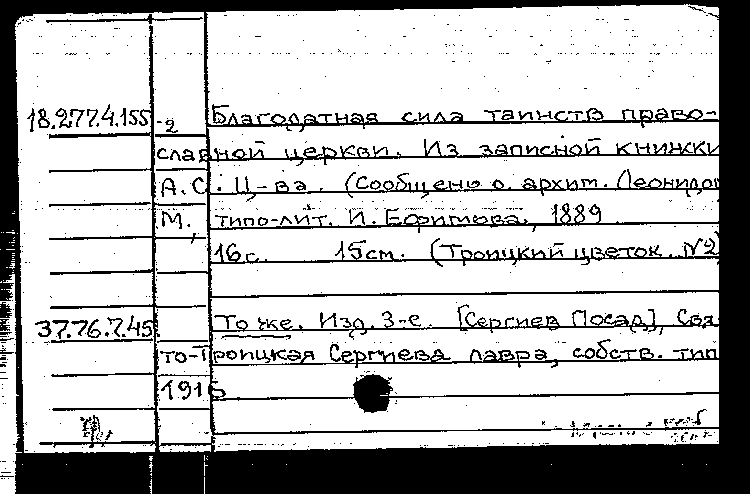 18.277.4.155-2 Благодатная сила таинств право-
славной церкви. Из записной книжки
А.С. Ц-ва. (Сообщено о. архим. Леонидом
М., типо-лит. И. Ефимова, 1889
16с. 15см. (Троицкий цветок. №2
37.76.7.45. То же. Изд. 3-е. [Сергиев Посад], Свя-
то-Троицкая Сергиева лавра, собств. тип
1915